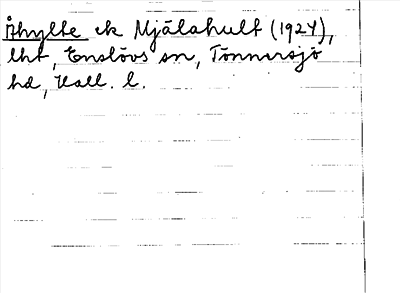 Åhylte ek Mjälahult (1924),
lht, Enslövs sn, Tönnersjö
hd, Hall. l.